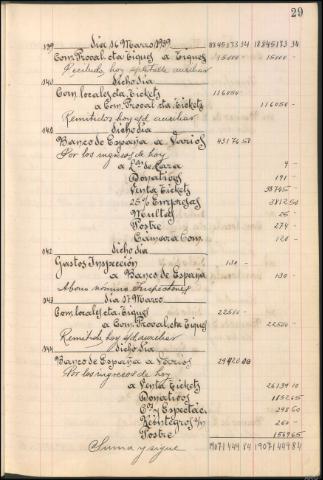 29
139 día 16 Marzo 1939 18845173 34 18845173 34
Com. Provcal. cta Tiques a Tiques 15000 - 15000 -
Recibido, hoy s/detalle auxiliar
140 dicho día
Com. locales cta. Tickets 116050 -
a Com. Provcal cta. Tickets 116050 -
Remitidos hoy s/d auxiliar
dicho día
Banco de España a Varios
Por los ingresos de hoy
9 -
Donativos 191 -
Venta Tickets
25% Empresas
Multas 25 -
Postre 274 -
Cámara Com. 120 -
142 dicho día
Gastos Inspección 130 -
a Banco de España 130 -
Abono nómina Inspectores
143 día 17 Marzo
Com. locales cta. Tiques 22500 -
a Com. Provcal. cta Tiques 22500 -
Remitido hoy s/d auxiliar
144 dicho día
Banco de España a Varios
Por los ingresos de hoy
a Venta Tickets 26139 10
Donativos
y Espectác. 298 50
Reintegros 260 -
Postre
Suma y sigue 19071449 84 19071449 84